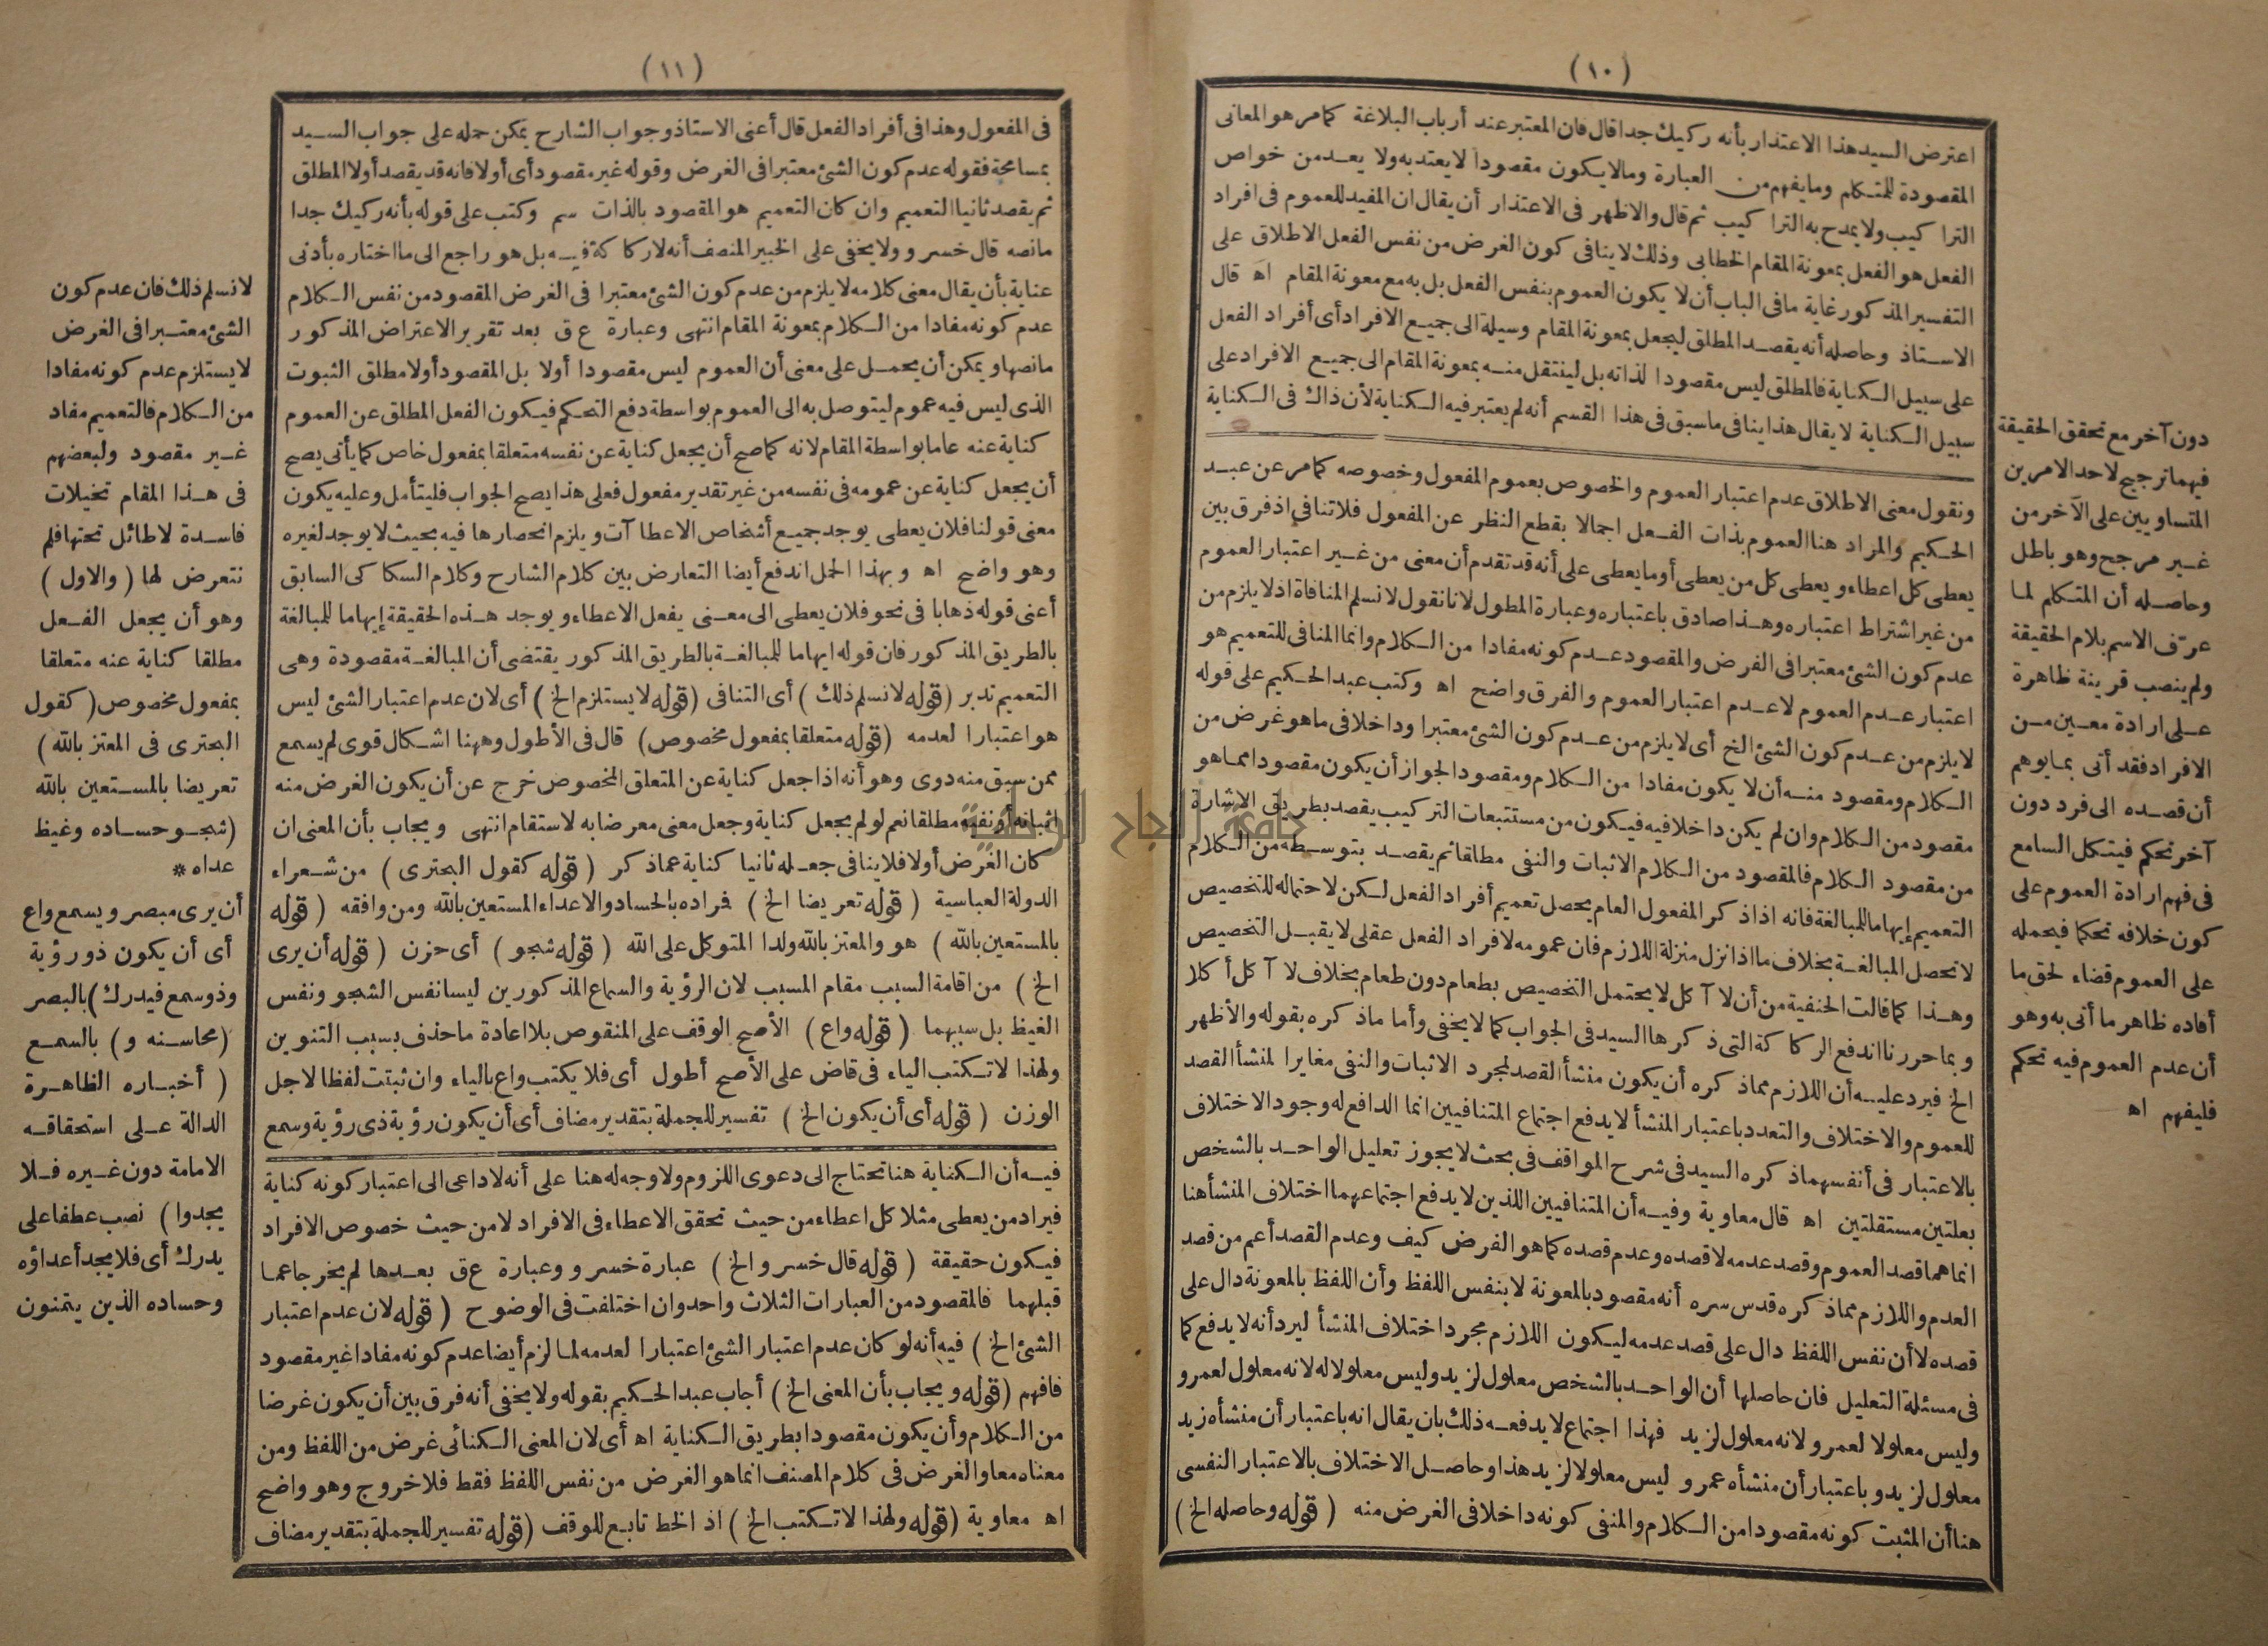 (١٠)
اعترض السيد هذا الاعتذار بأنه ركيك جدا قال فان المعتبر عند أرباب البلاغة كما مر هو المعانى
المقصودة للمتكلم وما يفهم من العبارة وما لا يكون مقصودا لا يعتد به ولا يعد من خواص
التراكيب ولا يمدح به التراكيب ثم قال والاظهر فى الاعتذار أن يقال ان المفيد للعموم فى افراد
الفعل هو الفعل بمعونة المقام الخطابى وذلك لا ينافى كون الغرض من نفس الفعل الاطلاق على
التفسير المذكور غاية ما فى الباب أن لا يكون العموم بنفس الفعل بل به مع معونة المقام اه قال
الاستاذ وحاصله أنه يقصد المطلق ليجعل بمعونة المقام وسيلة الى جميع الافراد أى أفراد الفعل
على سبيل الكناية فالمطلق ليس مقصودا لذاته بل لينتقل منه بمعونة المقام الى جميع الافراد على
سبيل الكناية لا يقال هذا ينافى ما سبق فى هذا القسم أنه لم يعتبر فيه الكناية لأن ذاك فى الكناية
ونقول معنى الاطلاق عدم اعتبار العموم والخصوص بعموم المفعول وخصوصه كما مر عن عبد
الحكيم والمراد هنا العموم بذات الفعل اجمالا بقطع النظر عن المفعول فلا تنافى اذ فرق بين
يعطى كل اعطاء ويعطى كل من يعطى أو ما يعطى على أنه قد تقدم أن معنى من غير اعتبار العموم
من غير اشتراط اعتباره وهذا صادق باعتباره وعبارة المطول لانا نقول لا نسلم المنافاة اذ لا يلزم من
عدم كون الشئ معتبرا فى الغرض والمقصود عدم كونه مفادا من الكلام وانما المنافى للتعميم هو
اعتبار عدم العموم لا عدم اعتبار العموم والفرق واضح اه وكتب عبد الحكيم على قوله
لا يلزم من عدم كون الشئ الخ أى لا يلزم من عدم كون الشئ معتبرا وداخلا فى ما هو غرض من
الكلام ومقصود منه أن لا يكون مفادا من الكلام ومقصودا لجواز أن يكون مقصودا مما هو
مقصود من الكلام وان لم يكن داخلا فيه فيكون من مستتبعات التركيب يقصد بطريق الاشارة
من مقصود الكلام فالمقصود من الكلام الاثبات والنفى مطلقا ثم يقصد بتوسطه من الكلام
التعميم إيهاما للمبالغة فانه اذا ذكر المفعول العام يحصل تعميم أفراد الفعل لكن لاحتماله للتخصيص
لا تحصل المبالغة بخلاف ما اذا نزل منزلة اللازم فان عمومه لافراد الفعل عقلى لا يقبل التخصيص
وهذا كما قالت الحنفية من أن لا آكل لا يحتمل التخصيص بطعام دون طعام بخلاف لا آكل أكلا
وبما حررنا اندفع الركاكة التى ذكرها السيد فى الجواب كما لا يخفى وأما ما ذكره بقوله والأظهر
الخ فيرد عليه أن اللازم مما ذكره أن يكون منشأ القصد لمجرد الاثبات والنفى مغايرا لمنشأ القصد
للعموم والاختلاف والتعدد باعتبار المنشأ لا يدفع اجتماع المتنافيين انما الدافع له وجود الاختلاف
بالاعتبار فى أنفسهما ذكره السيد فى شرح المواقف فى بحث لا يجوز تعليل الواحد بالشخص
بعلتين مستقلتين اه قال معاوية وفيه أن المتنافيين اللذين لا يدفع اجتماعهما اختلاف المنشأ هنا
انما هما قصد العموم وقصد عدمه لا قصده وعدم قصده كما هو الفرض كيف وعدم القصد أعم من قصد
العدم واللازم مما ذكره قدس سره أنه مقصود بالمعونة لا بنفس اللفظ وأن اللفظ بالمعونة دال على
قصده لا أن نفس اللفظ دال على قصد عدمه ليكون اللازم مجرد اختلاف المنشأ ليرد أنه لا يدفع كما
فى مسئلة التعليل فان حاصلها أن الواحد بالشخص معلول لزيد وليس معلولا له لانه معلول لعمرو
وليس معلولا لعمرو لانه معلول لزيد فهذا اجتماع لا يدفعه ذلك بان يقال انه باعتبار أن منشأه زيد
معلول لزيد وباعتبار أن منشأه عمرو ليس معلولا لزيد هذا وحاصل الاختلاف بالاعتبار النفسى
هنا أن المثبت كونه مقصودا من الكلام والمنفى كونه داخلا فى الغرض منه (قوله وحاصله الخ)
دون آخر مع تحقق الحقيقة
فيهما ترجيح لاحد الامرين
المتساويين على الآخر من
غير مرجح وهو باطل
وحاصله أن المتكلم لما
عرّف الاسم بلام الحقيقة
ولم ينصب قرينة ظاهرة
على ارادة معين من
الافراد فقد أتى بما يوهم
أن قصده الى فرد دون
آخر تحكم فيتكل السامع
فى فهم ارادة العموم على
كون خلافه تحكما فيحمله
على العموم قضاء لحق ما
أفاده ظاهر ما أتى به وهو
أن عدم العموم فيه تحكم
فليفهم اه
(١١)
فى المفعول وهذا فى أفراد الفعل قال أعنى الاستاذ وجواب الشارح يمكن حمله على جواب السيد
بمسامحة فقوله عدم كون الشئ معتبرا فى الغرض وقوله غير مقصود أى أولا فانه قد يقصد أولا المطلق
ثم يقصد ثانيا التعميم وان كان التعميم هو المقصود بالذات سم وكتب على قوله بأنه ركيك جدا
ما نصه قال خسرو ولا يخفى على الخبير المنصف أنه لا ركاكة فيه بل هو راجع الى ما اختاره بأدنى
عناية بأن يقال معنى كلامه لا يلزم من عدم كون الشئ معتبرا فى الغرض المقصود من نفس الكلام
عدم كونه مفادا من الكلام بمعونة المقام انتهى وعبارة ع ق بعد تقرير الاعتراض المذكور
ما نصها ويمكن أن يحمل على معنى أن العموم ليس مقصودا أولا بل المقصود أولا مطلق الثبوت
الذى ليس فيه عموم ليتوصل به الى العموم بواسطة دفع التحكم فيكون الفعل المطلق عن العموم
كناية عنه عاما بواسطة المقام لانه كما صح أن يجعل كناية عن نفسه متعلقا بمفعول خاص كما يأتى يصح
أن يجعل كناية عن عمومه فى نفسه من غير تقدير مفعول فعلى هذا يصح الجواب فليتأمل وعليه يكون
معنى قولنا فلان يعطى يوجد جميع أشخاص الاعطاآت ويلزم انحصارها فيه بحيث لا يوجد لغيره
وهو واضح اه وبهذا الحمل اندفع أيضا التعارض بين كلام الشارح وكلام السكاكى السابق
أعنى قوله ذهابا فى نحو فلان يعطى الى معنى يفعل الاعطاء ويوجد هذه الحقيقة إيهاما للمبالغة
بالطريق المذكور فان قوله ايهاما للمبالغة بالطريق المذكور يقتضى أن المبالغة مقصودة وهى
التعميم تدبر (قوله لا نسلم ذلك) أى التنافى (قوله لا يستلزم الخ) أى لان عدم اعتبار الشئ ليس
هو اعتبارا لعدمه (قوله متعلقا بمفعول مخصوص) قال فى الأطول وههنا اشكال قوى لم يسمع
ممن سبق منه دوى وهو أنه اذا جعل كناية عن المتعلق المخصوص خرج عن أن يكون الغرض منه
اثباته أو نفيه مطلقا نعم لو لم يجعل كناية وجعل معنى معرضا به لاستقام انتهى ويجاب بأن المعنى ان
كان الغرض أولا فلا ينافى جعله ثانيا كناية عما ذكر (قوله كقول البحترى) من شعراء
الدولة العباسية (قوله تعريضا الخ) فراده بالحساد والاعداء المستعين بالله ومن وافقه (قوله
بالمستعين بالله) هو والمعتز بالله ولدا المتوكل على الله (قوله شجو) أى حزن (قوله أن يرى
الخ) من اقامة السبب مقام المسبب لان الرؤية والسماع المذكورين ليسا نفس الشجو ونفس
الغيظ بل سببهما (قوله واع) الأصح الوقف على المنقوص بلا اعادة ما حذف بسبب التنوين
ولهذا لا تكتب الياء فى قاض على الأصح أطول أى فلا يكتب واع بالياء وان ثبتت لفظا لاجل
الوزن (قوله أى أن يكون الخ) تفسير للجملة بتقدير مضاف أى أن يكون رؤية ذى رؤية وسمع
فيه أن الكناية هنا تحتاج الى دعوى اللزوم ولا وجه له هنا على أنه لا داعى الى اعتبار كونه كناية
فيراد من يعطى مثلا كل اعطاء من حيث تحقق الاعطاء فى الافراد لا من حيث خصوص الافراد
فيكون حقيقة (قوله قال خسرو الخ) عبارة خسرو وعبارة ع ق بعدها لم يخرجا عما
قبلهما فالمقصود من العبارات الثلاث واحد وان اختلفت فى الوضوح (قوله لان عدم اعتبار
الشئ الخ) فيه أنه لو كان عدم اعتبار الشئ اعتبارا لعدمه لما لزم أيضا عدم كونه مفادا غير مقصود
فافهم (قوله ويجاب بأن المعنى الخ) أجاب عبد الحكيم بقوله ولا يخفى أنه فرق بين أن يكون غرضا
من الكلام وأن يكون مقصودا بطريق الكناية اه أى لان المعنى الكنائى غرض من اللفظ ومن
معناه معا والغرض فى كلام المصنف انما هو الغرض من نفس اللفظ فقط فلا خروج وهو واضح
اه معاوية (قوله ولهذا لا تكتب الخ) اذ الخط تابع للوقف (قوله تفسير للجملة بتقدير مضاف
لا نسلم ذلك فان عدم كون
الشئ معتبرا فى الغرض
لا يستلزم عدم كونه مفادا
من الكلام فالتعميم مفاد
غير مقصود ولبعضهم
فى هذا المقام تخيلات
فاسدة لا طائل تحتها فلم
نتعرض لها (والاول)
وهو أن يجعل الفعل
مطلقا كناية عنه متعلقا
بمفعول مخصوص (كقول
البحترى فى المعتز بالله)
تعريضا بالمستعين بالله
(شجو حساده وغيظ
عداه *
أن يرى مبصر ويسمع واع
أى أن يكون ذو رؤية
وذو سمع فيدرك) بالبصر
(محاسنه و) بالسمع
(أخباره الظاهرة
الدالة على استحقاقه
الامامة دون غيره فلا
يجدوا) نصب عطفا على
يدرك أى فلا يجد أعداؤه
وحساده الذين يتمنون
جامعة النجاح الوطنية